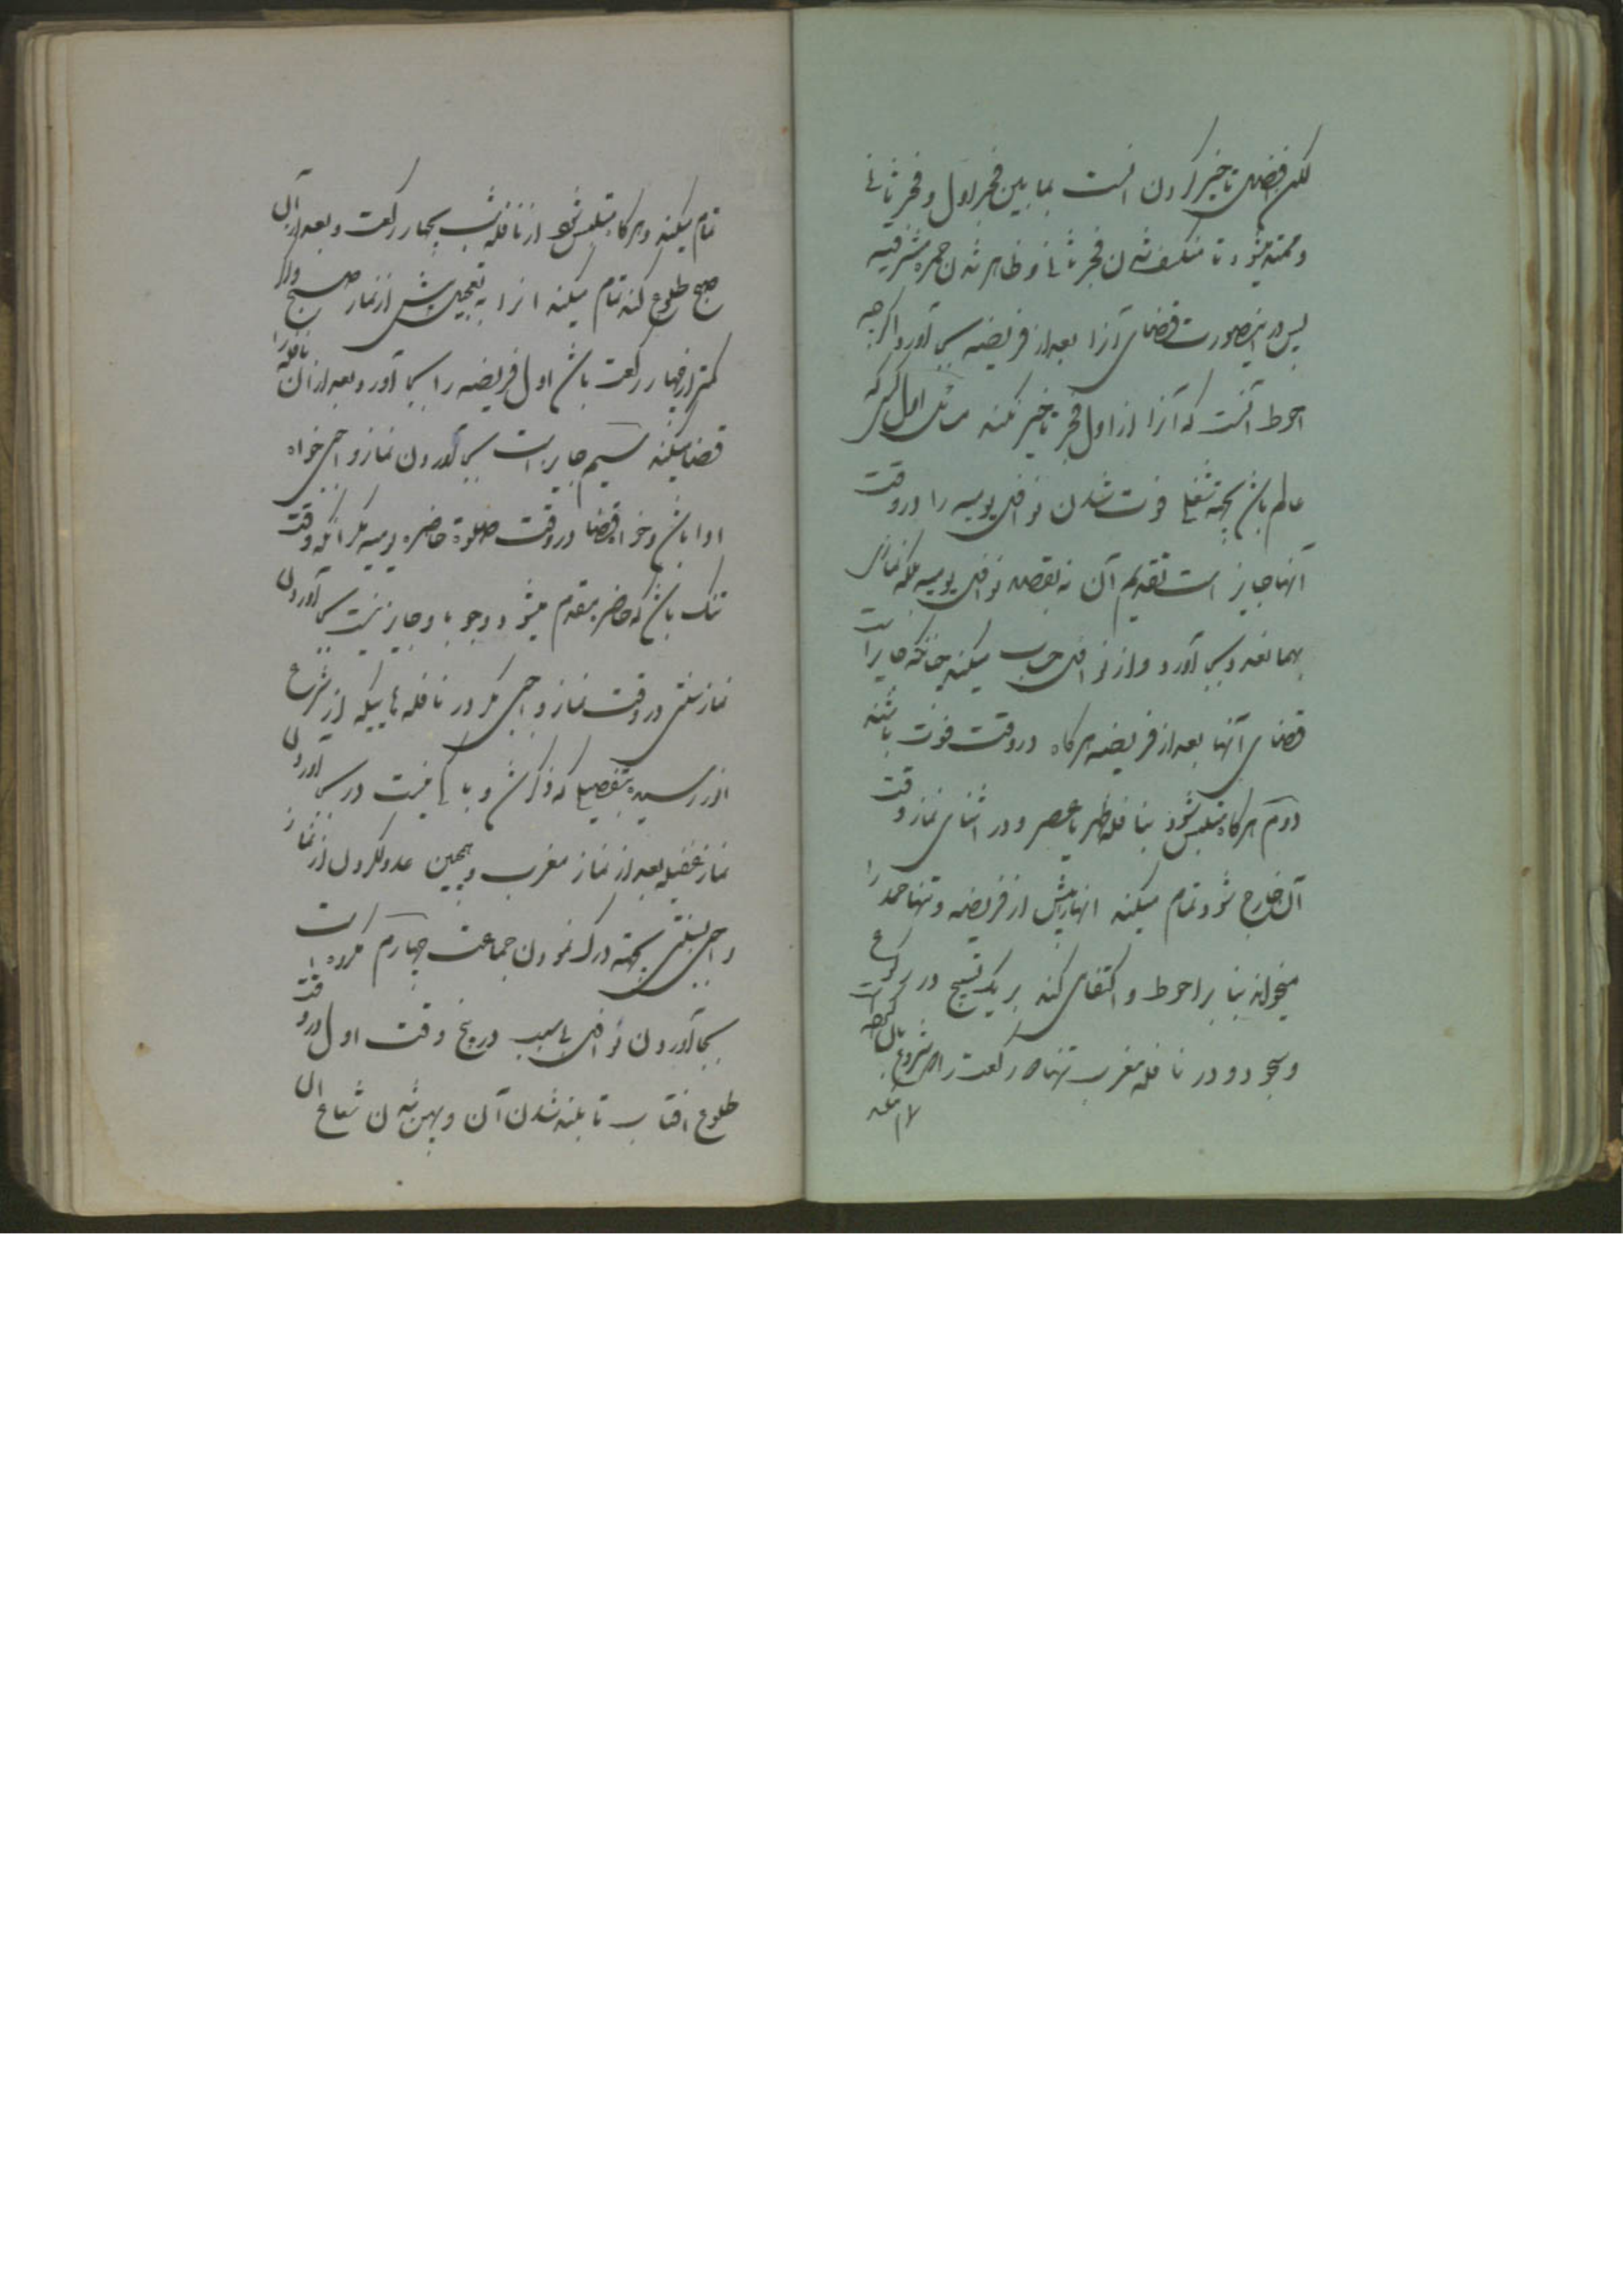 لکن افضل تاخیر کردن انست بما بین فجر اول و فجر ثانی
و ممتد میشود تا منکشف شدن فجر ثانی و ظاهر شدن حمره مشرقیه
پس در اینصورت قضای آنرا بعد از فریضه بجا آورد اگرچه
احوط آنست که آنرا از اول فجر تاخیر نکند مسائل اول کسی که
عالم باشد بجهة شغلی فوت شدن نوافل یومیه را در وقت
آنها جایز است تقدیم آن نه بقصد نوافل یومیه بلکه نمازی
بهمانقدر بجا آورد و از نوافل حساب میکند چنانکه جایز است
قضای آنها بعد از فریضه هرگاه در وقت فوت باشند
دوم هرگاه متلبس شود بنافله ظهر یا عصر و در اثنای نماز وقت
آن خارج شود تمام میکند انها را پیش از فریضه و تنها حمد را
میخواند بنا بر احوط و اکتفای کند بر یک تسبیح در رکوع
و سجود و در نافله مغرب تنها دو رکعت را که شروع بان کرده است
تمام میکند و هرگاه متلبس شود از نافله شب بچهار رکعت و بعد از آن
صبح طلوع کند تمام میکند انرا به تعجیل پیش از نماز صبح و اگر
کمتر از چهار رکعت باشد اول فریضه را بجا آورد و بعد از ان نافله را
قضا میکند سیم جایز است بجا آوردن نماز واجبی خواه
ادا باشد و خواه قضا در وقت صلوة حاضره یومیه مگر انکه وقت
تنک باشد که حاضر مقدم میشود وجوبا و جایز نیست بجا آوردن
نماز سنتی در وقت نماز واجبی مگر در نافله هاییکه از شرع
انور رسیده بتفصیلی که ذکر شد و باکی نیست در بجا آوردن
نماز غفیله بعد از نماز مغرب و همچنین عدول کردن از نماز
واجبی بسنتی بجهة درک نمودن جماعت چهارم مکروه است
بجا آوردن نوافل بی سبب در پنج وقت اول در وقت
طلوع افتاب تا بلند شدن آن و پهن شدن شعاع ان